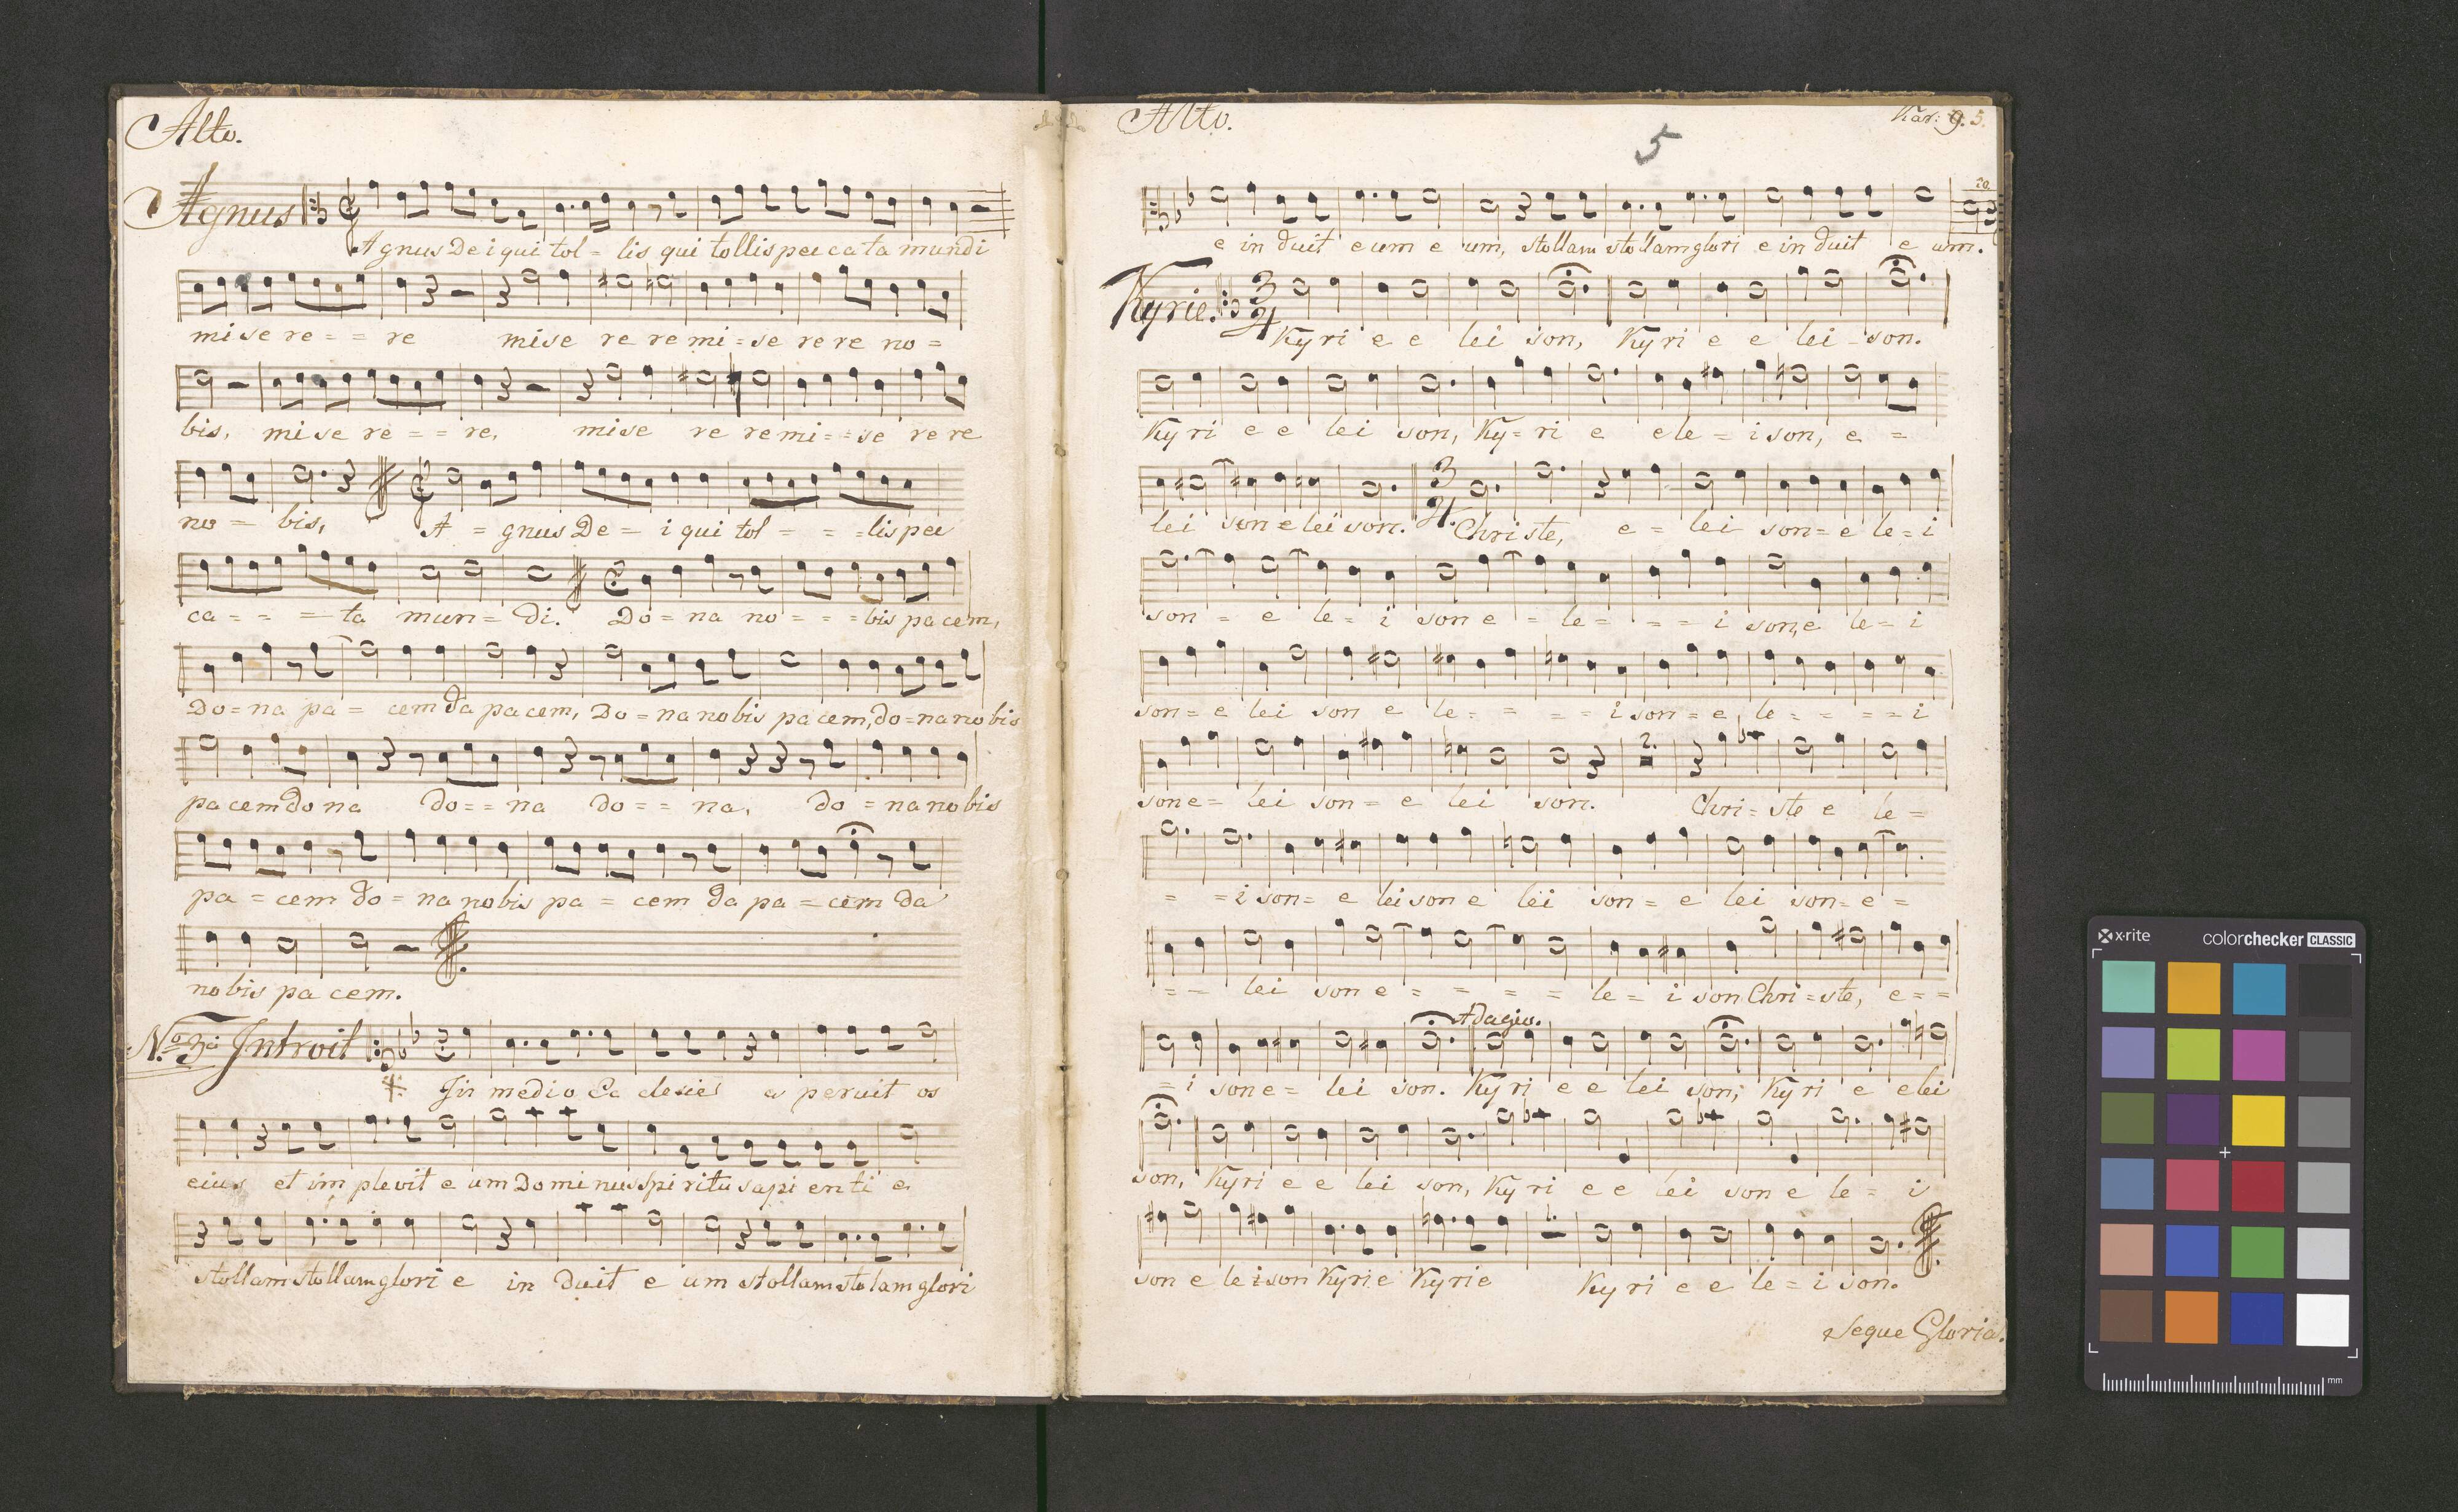 Alto.
Agnus
Agnus De i qui tol = lis qui tollis pec ca ta mundi
mi se re = = re mise re re mi = se re re no =
bis, mi se re = = re, mise re re mi = = se re re
no = bis, A = gnus De = i qui tol = = = lis pec
ca = = = ta mun = di. Do = na no = = = bis pa cem,
Do = na pa = cem da pa cem, Do = na no bis pa cem, do = na no bis
pa cem do na do = = na do = = na, do = na no bis
pa = cem do = na no bis pa = cem da pa = cem da
no bis pa cem.
No. 3. Introit
In medio Ec clesie a peruit os
eius et im plevit e um Do mi nus Spi ritu sapi en ti e
stollam stollam glori e in duit e um stollam sto lam glori
Alto.
Kar: 9. 5.
5
20
e in duit e um e um, stollam stollam glori e in duit e um.
Kyrie.
3
4
Ky ri e e lei son, Ky ri e e lei = son.
Ky ri e e lei son, Ky = ri e e le = i son, e =
lei son = e lei son. 3 4 Chri ste, e = lei son = e le = i
son = e le = i son e = le = = = i son, e le = i
son = e lei son e le = = = = i son = e le = = = = i
2.
son e = lei son = e lei son. Chri = ste e le =
= = i son = e lei son e lei son = e lei son = e =
= = lei son e = = = = le = i son Chri = ste, e = =
Adagio.
= i son e = lei son. Ky ri e e lei son; Ky ri e e lei
son, Ky ri e e lei son, Ky ri e e lei son e le = i
1.
son e le i son Kyri e Kyri e Ky ri e e le = i son.
Seque Gloria.
x·rite
colorchecker CLASSIC
mm